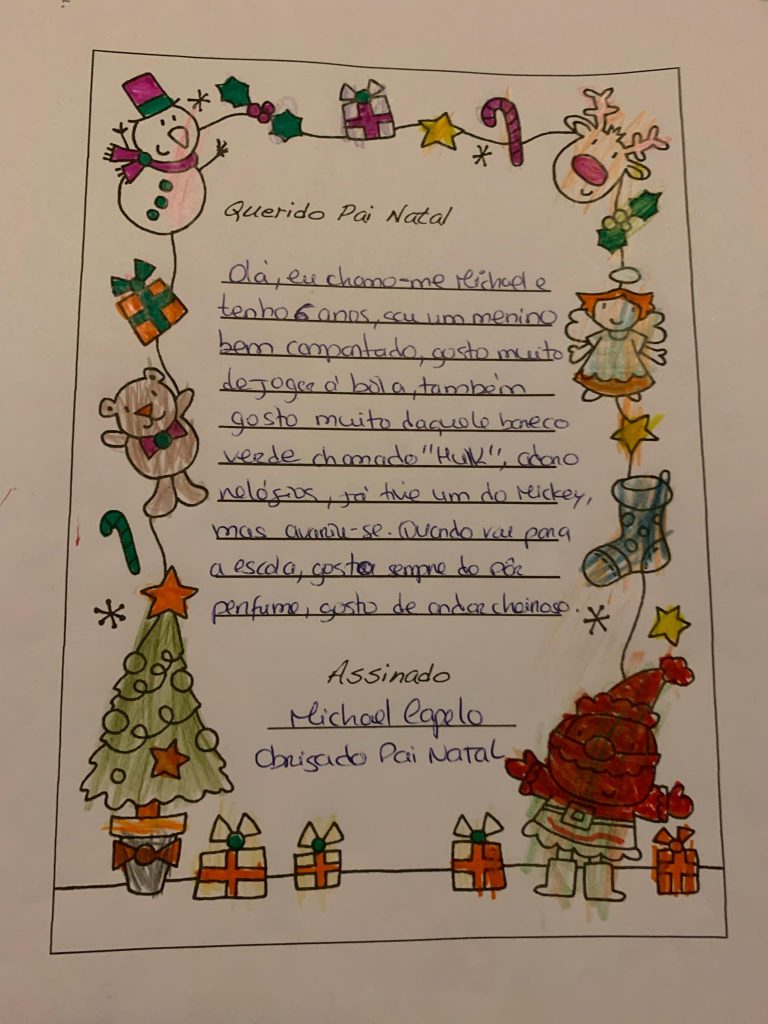 Querido Pai Natal
Olá, eu chamo-me Michael e
tenho 6 anos, sou um menino
bem comportado, gosto muito
de jogar á bola, também
gosto muito daquele boneco
verde chamado "Hulk", adoro
relógios, já tive um do Mickey,
mas avariu-se. Quando vou para
a escola, gosto sempre de pôr
perfume, gosto de andar cheiroso.
Assinado
Michael Capelo
Obrigado Pai Natal